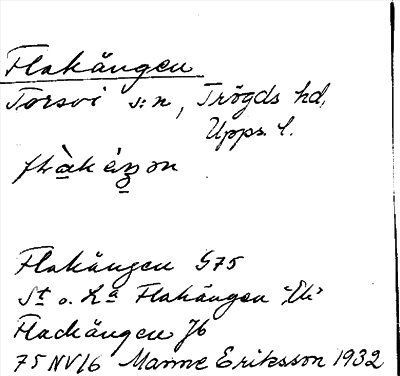 Flakängen
Torsvi s:n, Trögds hd,
Upps. l.
Flakängen G75
St o. La Flakängen "Ek"
Flackängen J6
75 NV/6 Manne Eriksson 1932